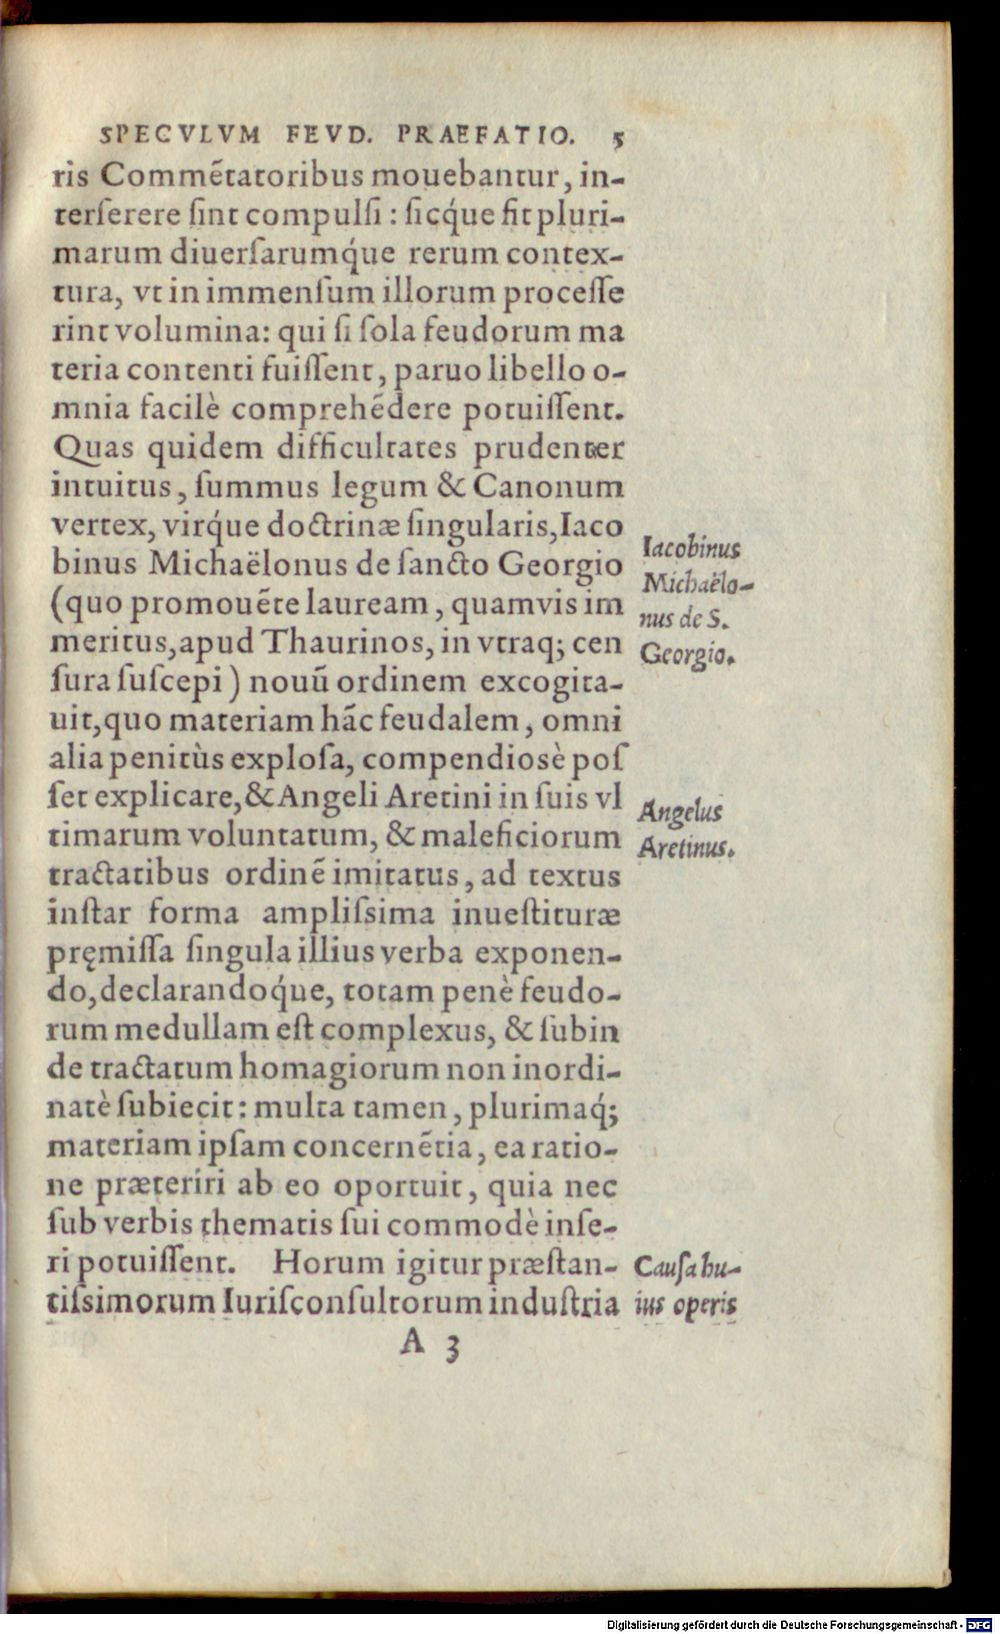 SPECVLVM FEVD. PRAEFATIO. 5
ris Commẽtatoribus mouebantur, in-
terserere sint compulsi : sicq́ue fit pluri-
marum diuersarumq́ue rerum contex-
tura, vt in immensum illorum processe
rint volumina: qui si sola feudorum ma
teria contenti fuissent, paruo libello o-
mnia facilè comprehẽdere potuissent.
Quas quidem difficultates prudenter
intuitus, summus legum & Canonum
vertex, virq́ue doctrinæ singularis, Iaco
binus Michaëlonus de sancto Georgio
(quo promouẽte lauream, quamvis im
meritus, apud Thaurinos, in vtraq; cen
sura suscepi) nouũ ordinem excogita-
uit, quo materiam hãc feudalem, omni
alia penitùs explosa, compendiosè pos
set explicare, & Angeli Aretini in suis vl
timarum voluntatum, & maleficiorum
tractatibus ordinẽ imitatus, ad textus
instar forma amplissima inuestituræ
pręmissa singula illius verba exponen-
do, declarandoq́ue, totam penè feudo-
rum medullam est complexus, & subin
de tractatum homagiorum non inordi-
natè subiecit: multa tamen, plurimaq́;
materiam ipsam concernẽtia, ea ratio-
ne præteriri ab eo oportuit, quia nec
sub verbis thematis sui commodè inse-
ri potuissent. Horum igitur præstan-
tissimorum Iurisconsultorum industria
A 3
Iacobinus
Michaëlo-
nus de S.
Georgio.
Angelus
Aretinus.
Causa hu-
ius operis
Digitalisierung gefördert durch die Deutsche Forschungsgemeinschaft - DFG